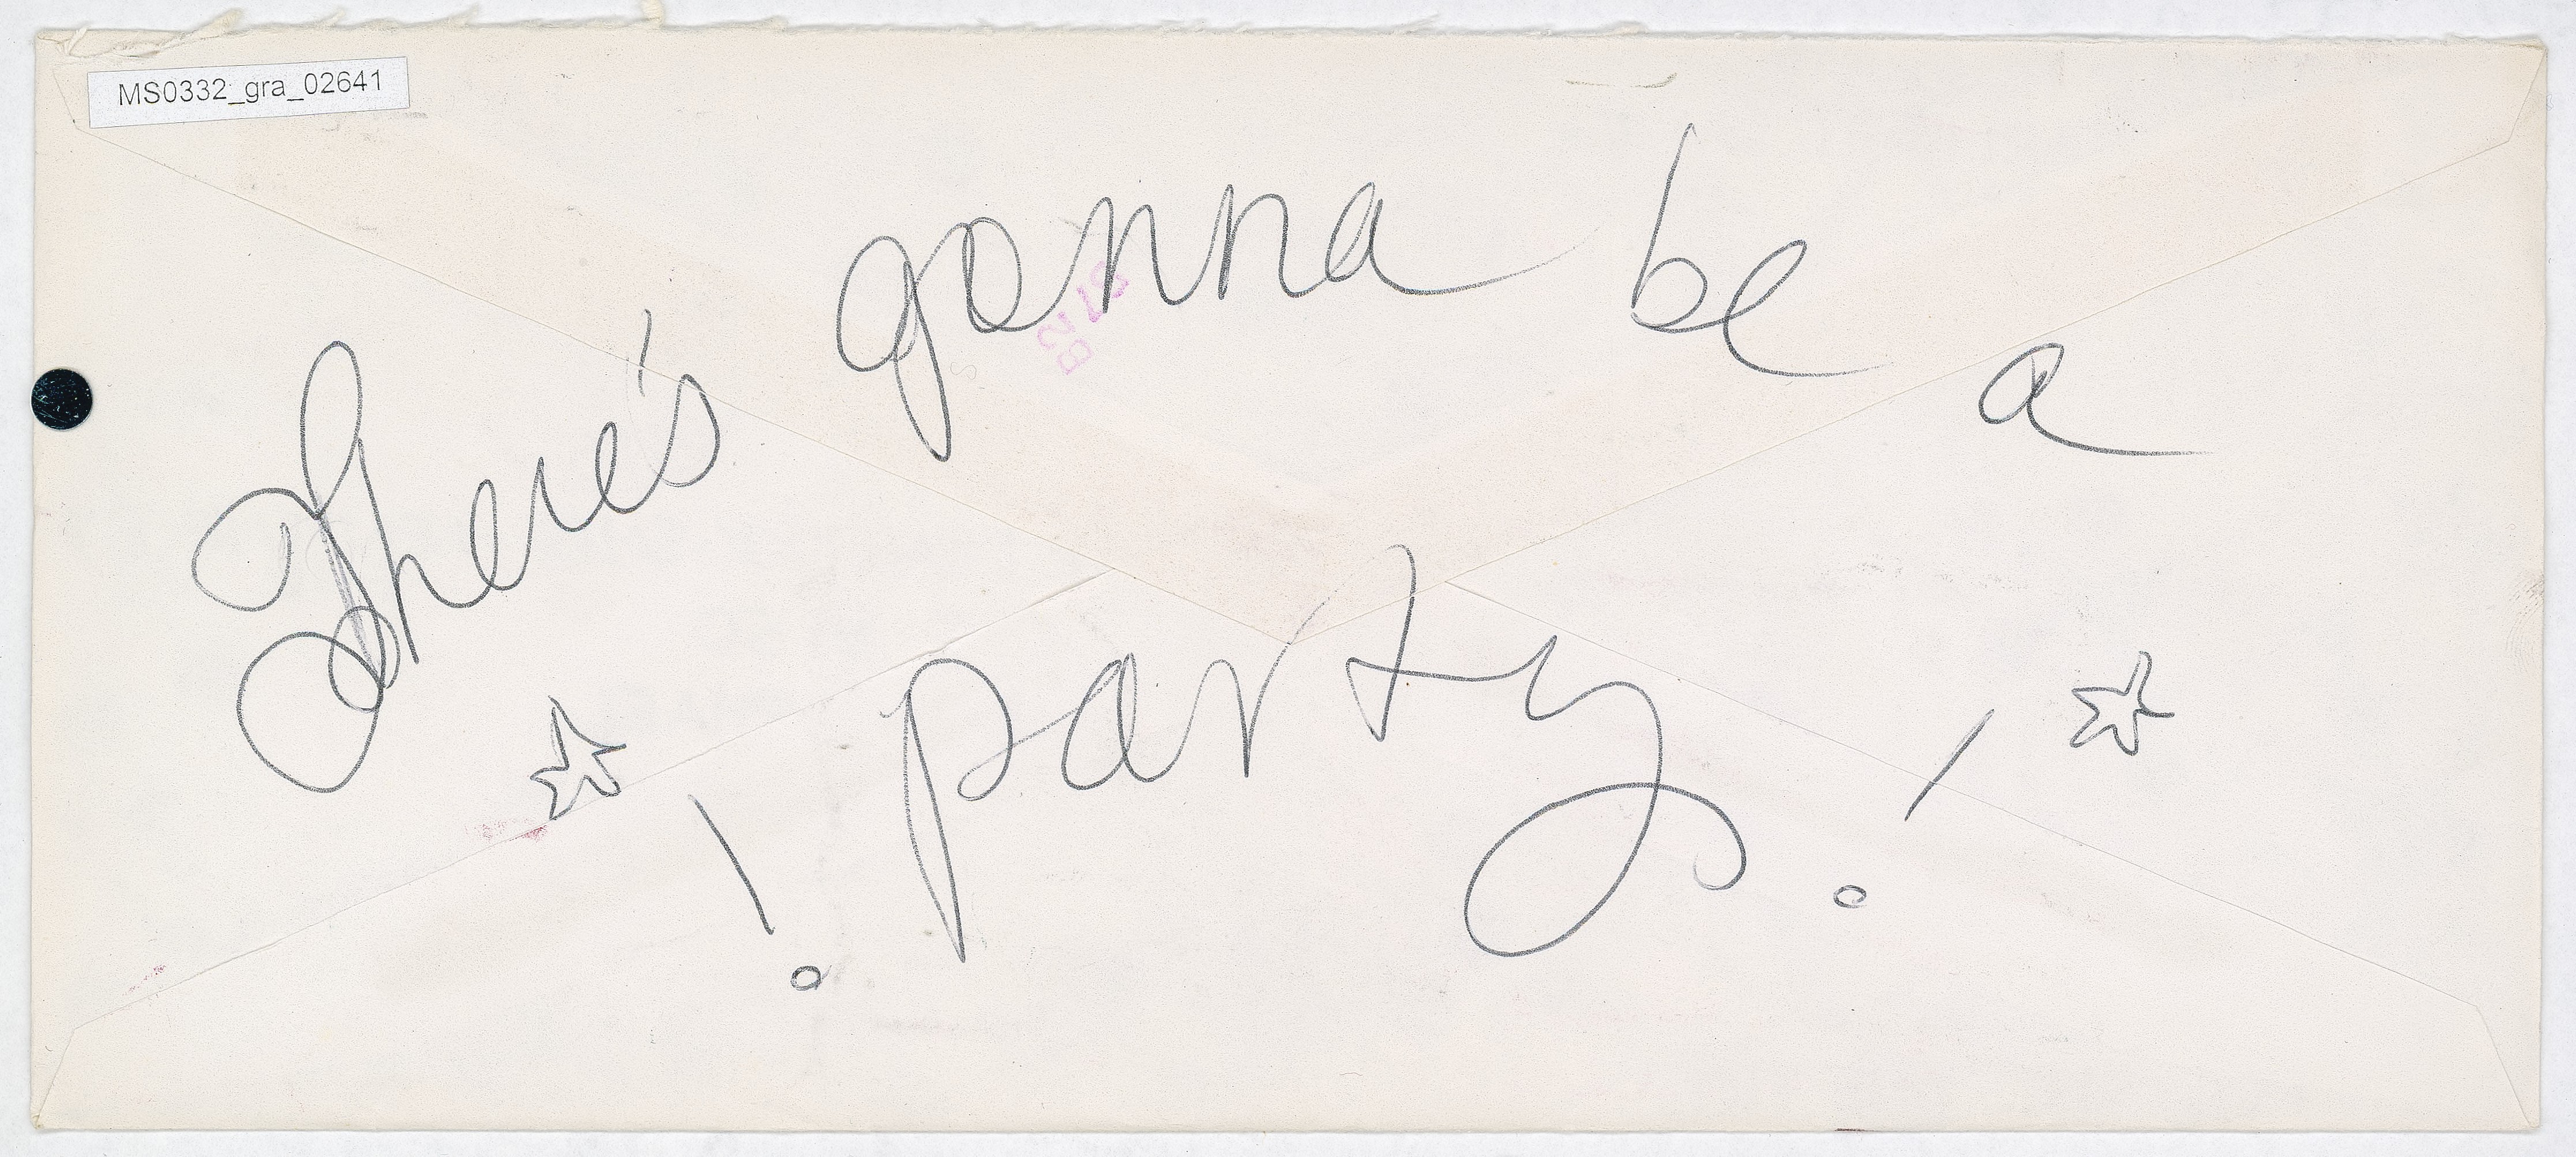 MS0332_gra_02641
There's gonna be a
☆ ! party ! ☆